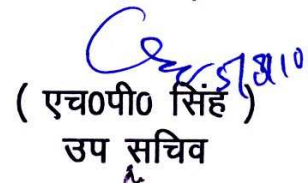 ( एच0पी0 सिंह )
उप सचिव